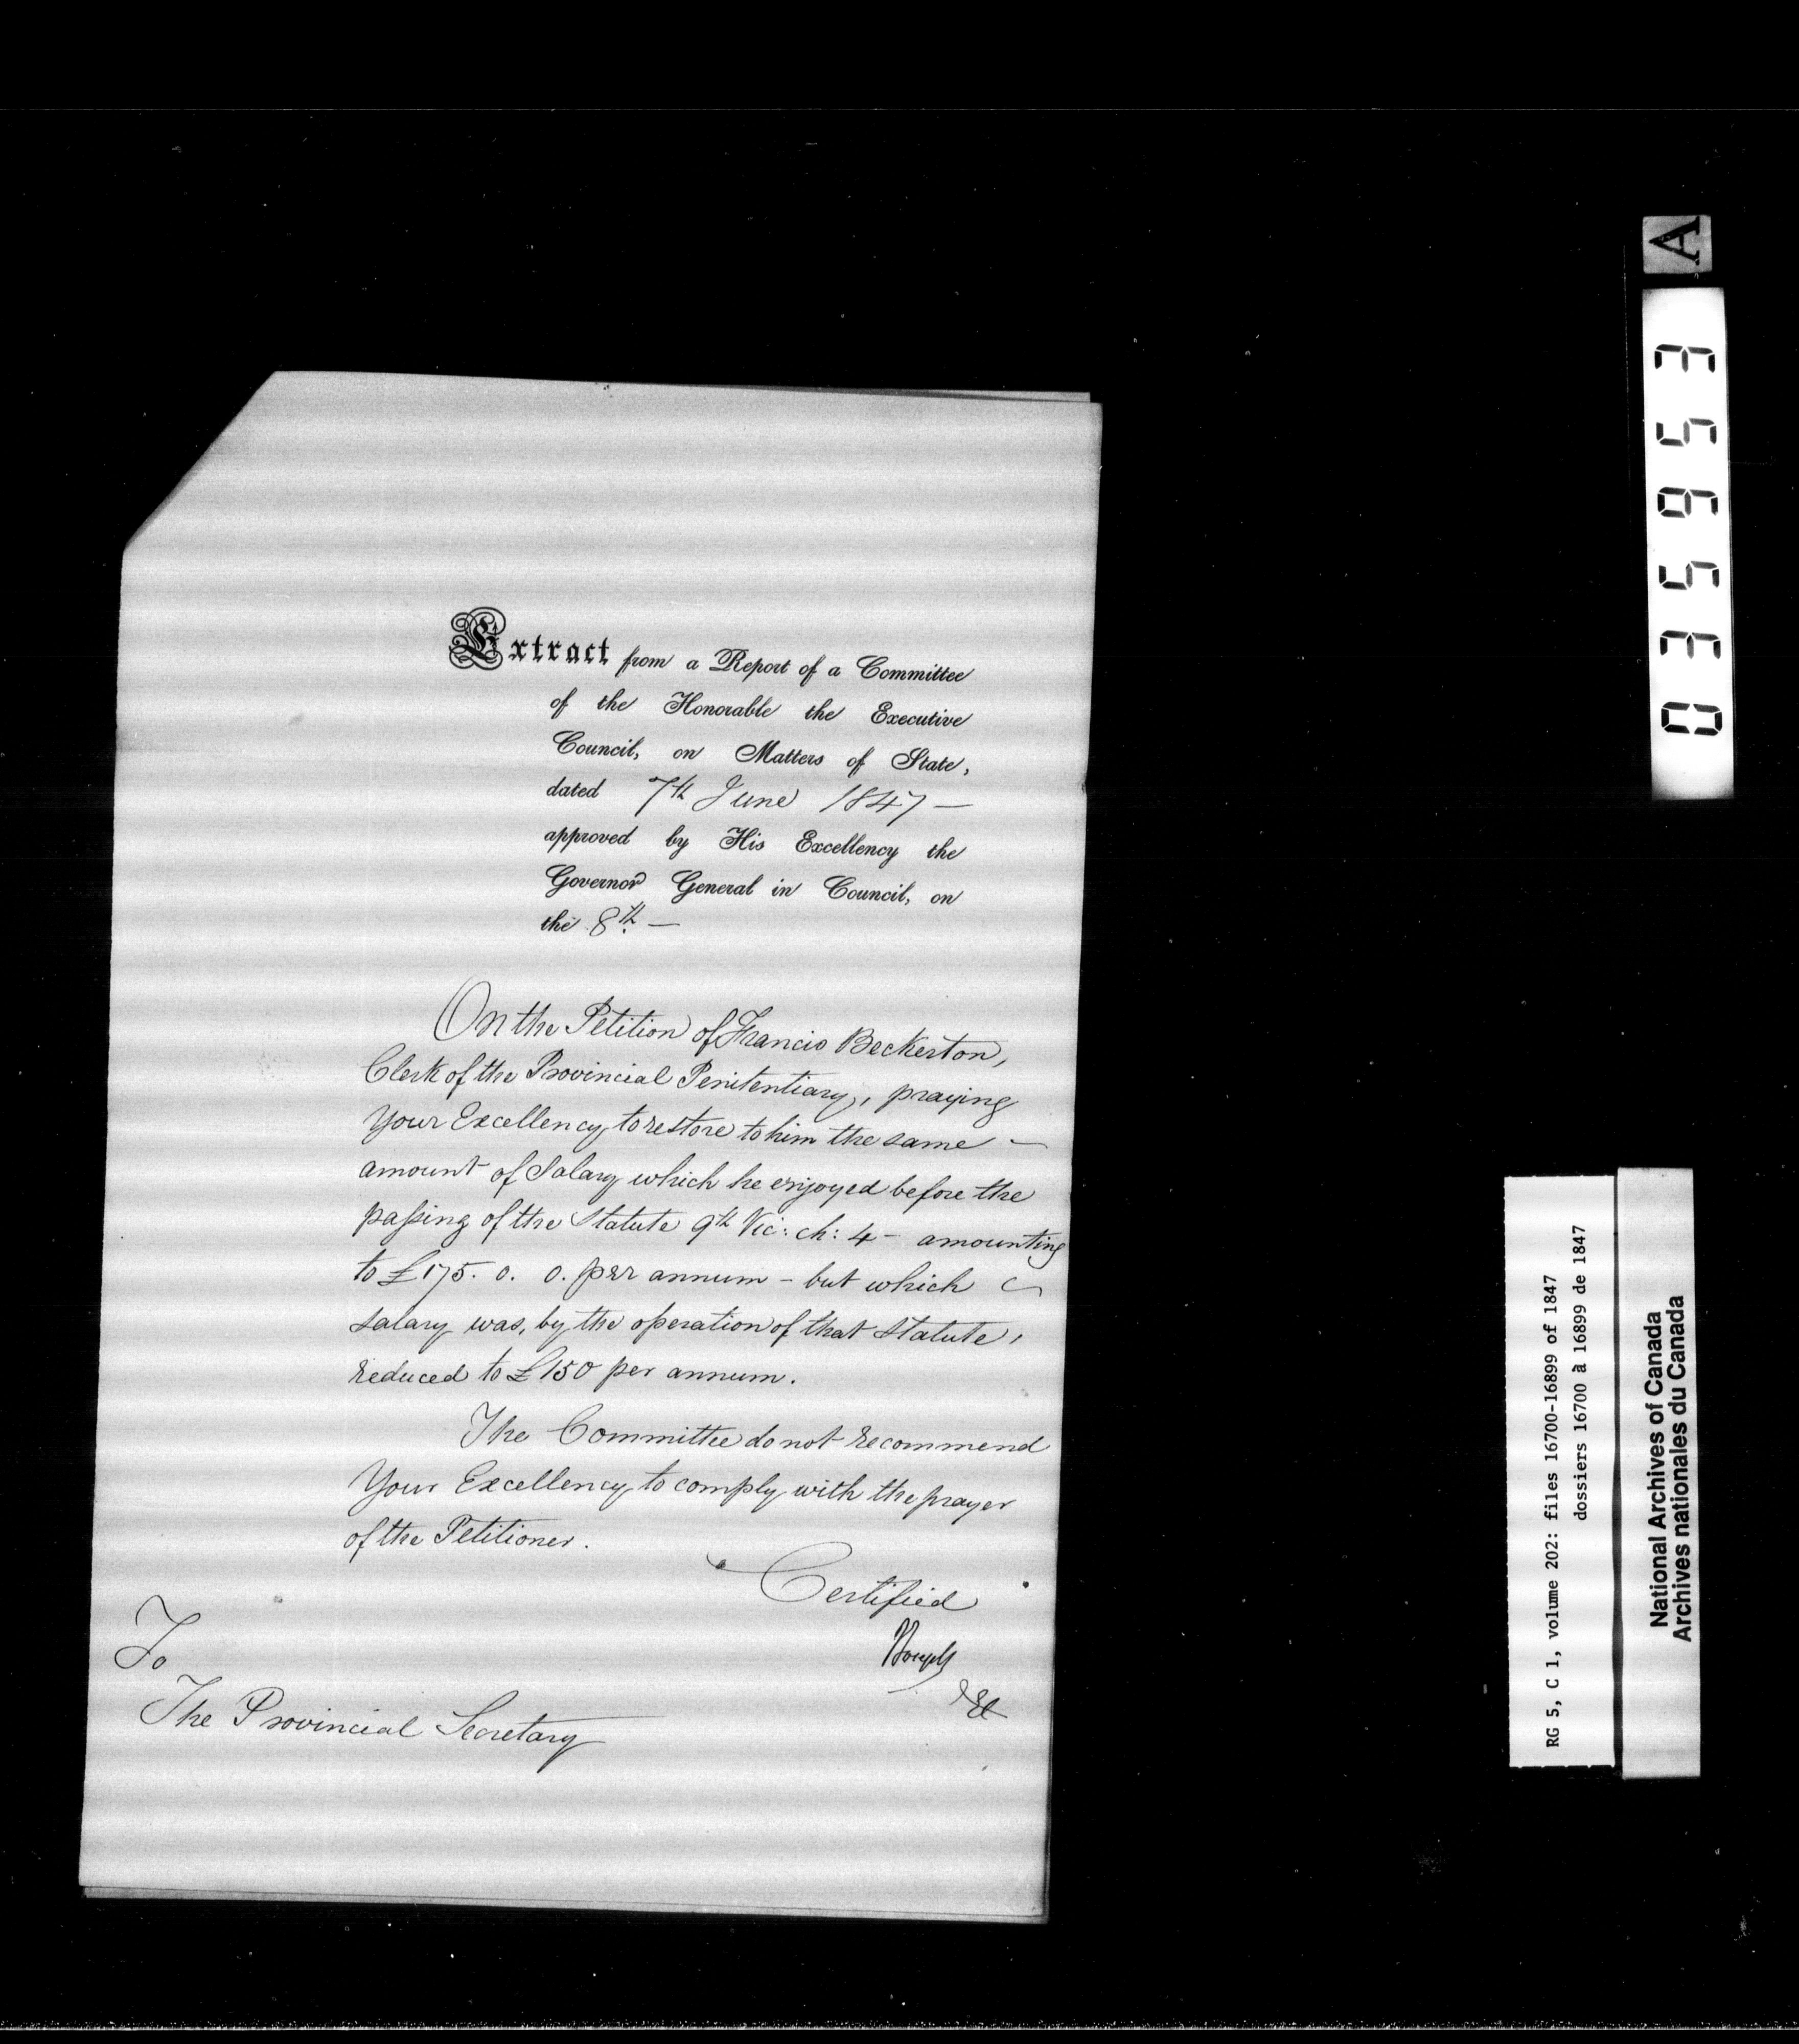 Extract from a Report of a Committee
of the Honorable the Executive
Council, on Matters of State,
dated 7th June 1847 —
approved by His Excellency the
Governor General in Council, on
the 8th —
On the Petition of Francis Beckerton,
Clerk of the Provincial Penitentiary, praying
Your Excellency to restore to him the same —
amount of Salary which he enjoyed before the
passing of the Statute 9th Vic: ch: 4 - amounting
to £175. 0. 0. per annum - but which
salary was, by the operation of that Statute,
reduced to £150 per annum.
The Committee do not recommend
Your Excellency to comply with the prayer
of the Petitioner.
Certified
To
The Provincial Secretary
A
035653
RG 5, C 1, volume 202: files 16700-16899 of 1847
dossiers 16700 à 16899 de 1847
National Archives of Canada
Archives nationales du Canada